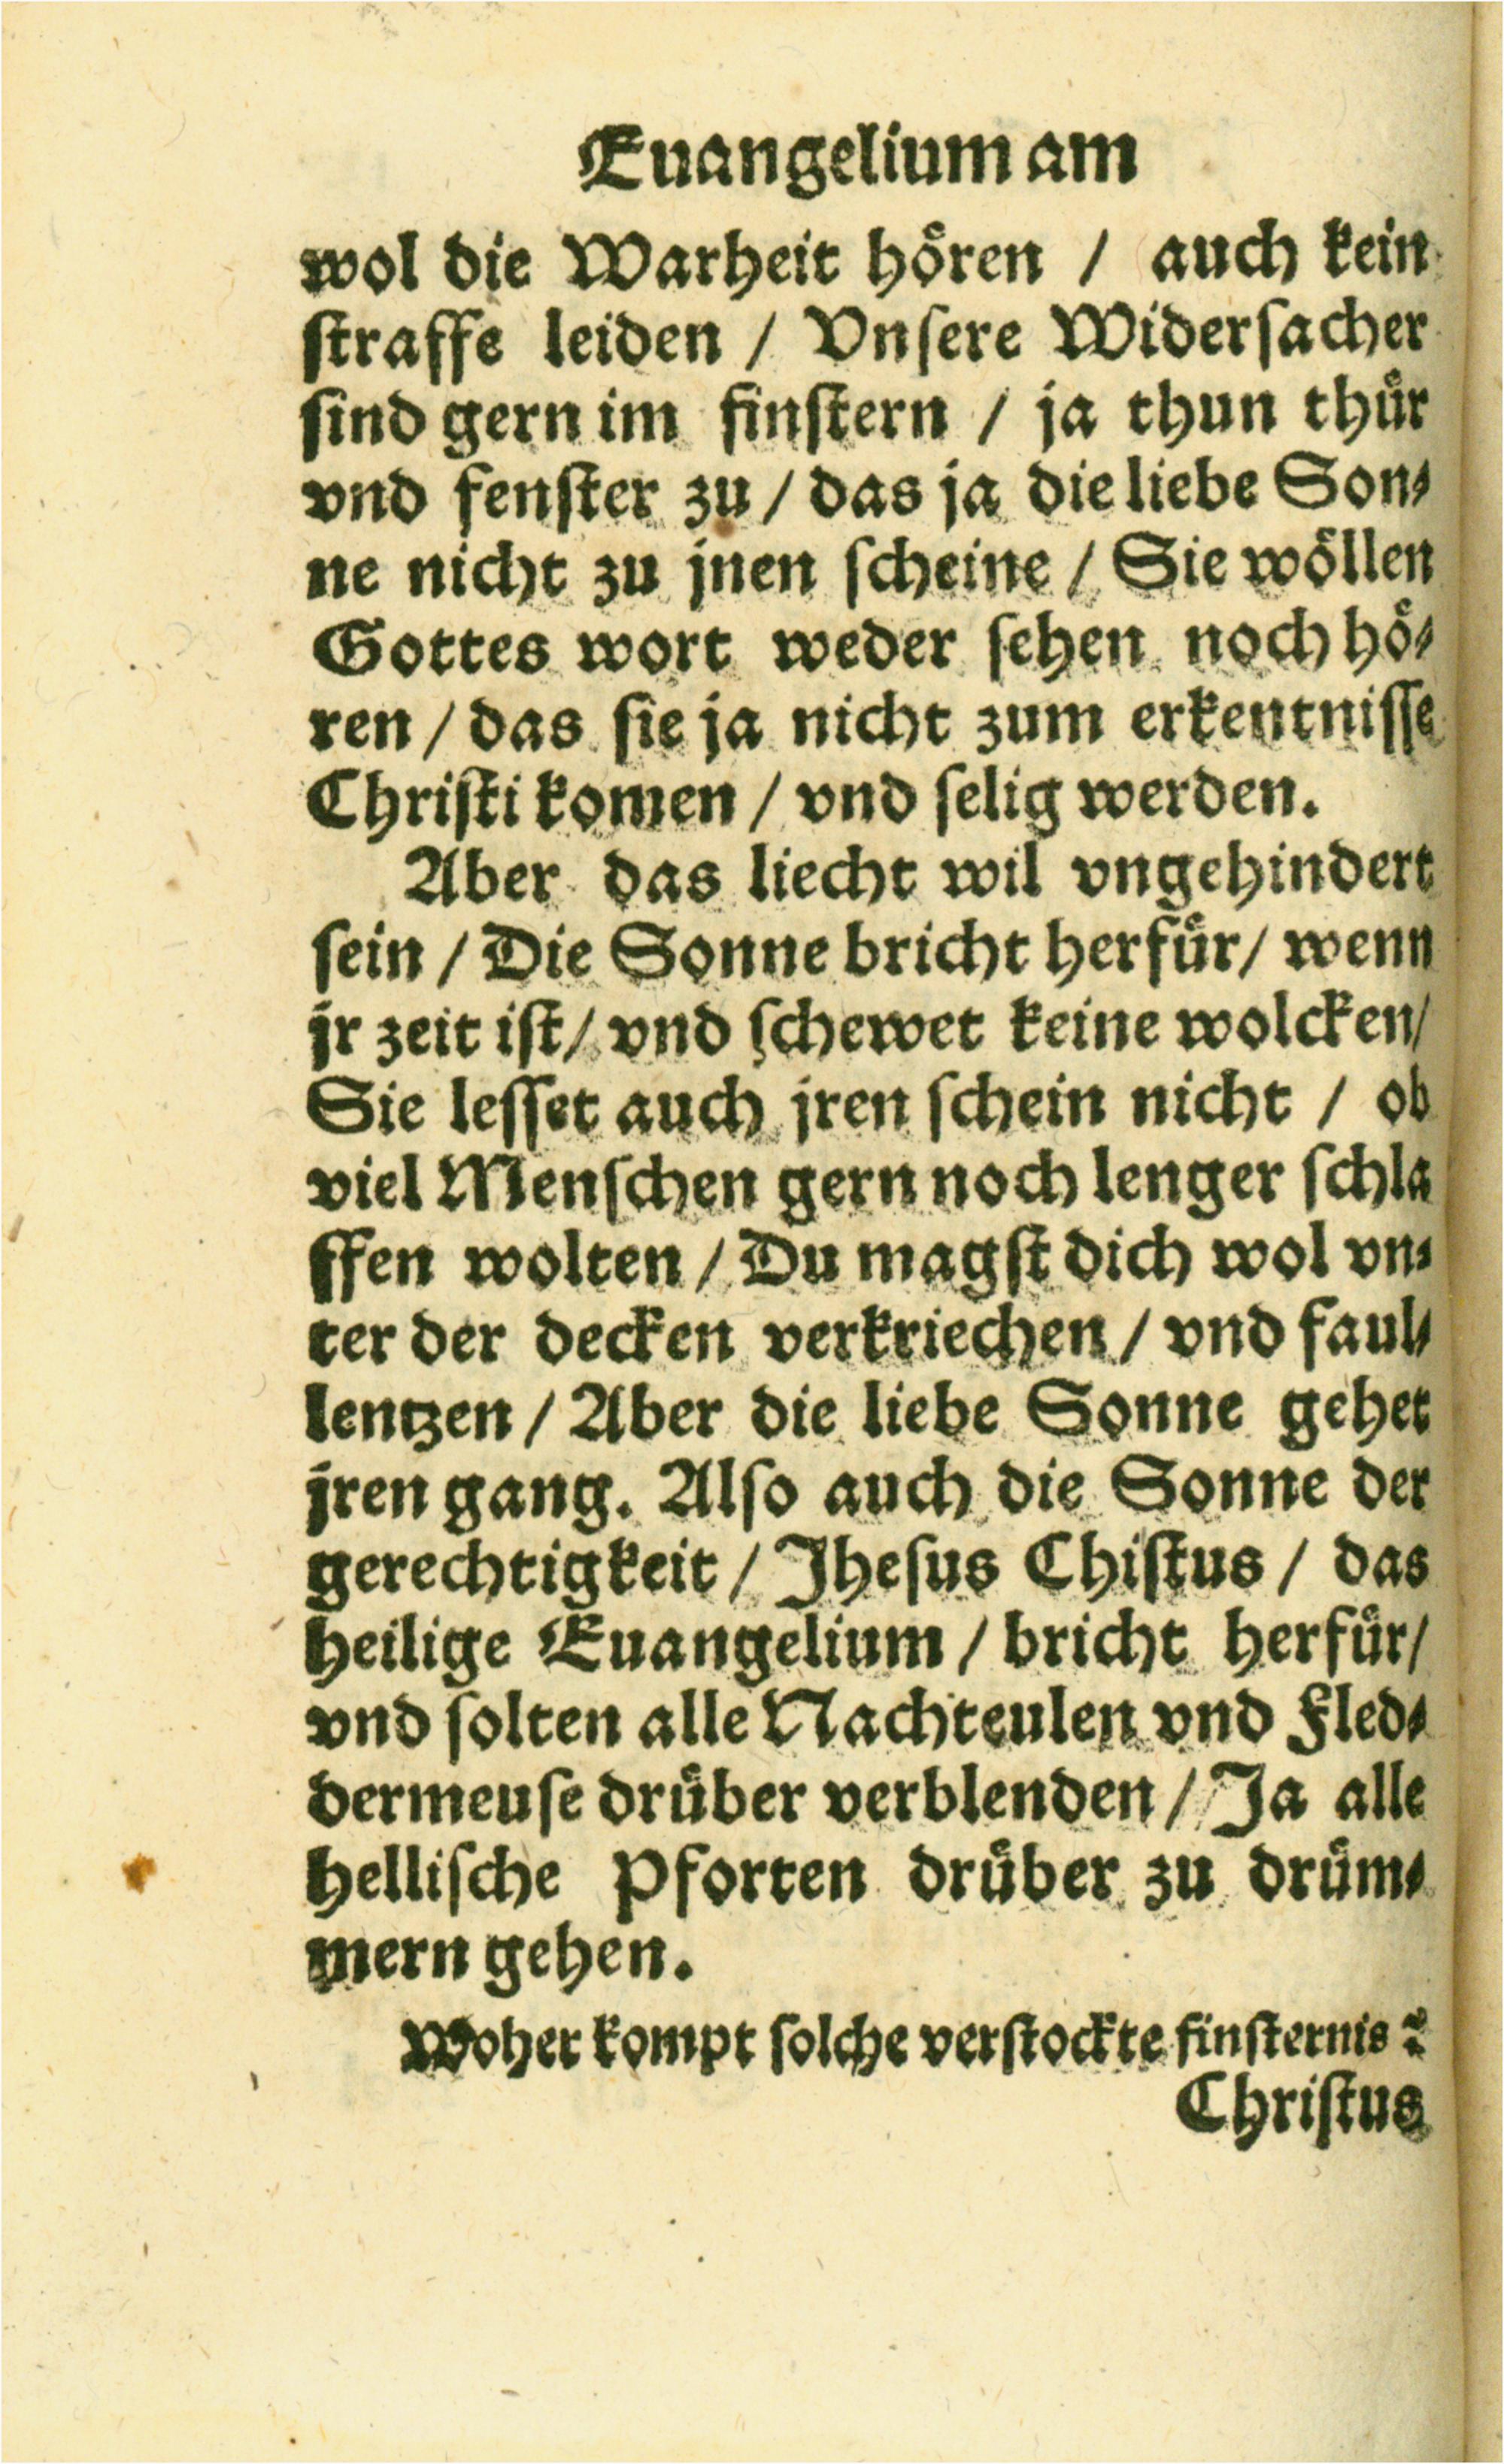 Euangelium am
wol die Warheit hoͤren / auch kein
ſtraffe leiden / Vnſere Widerſacher
ſind gern im finſtern / ja thun thuͤr
vnd fenſter zu / das ja die liebe Son⸗
ne nicht zu jnen ſcheine / Sie woͤllen
Gottes wort weder ſehen noch hoͤ⸗
ren / das ſie ja nicht zum erkentniſſe
Chriſti komen / vnd ſelig werden.
Aber das liecht wil vngehindert
ſein / Die Sonne bricht herfuͤr / wenn
jr zeit iſt / vnd ſchewet keine wolcken /
Sie leſſet auch jren ſchein nicht / ob
viel Menſchen gern noch lenger ſchla
ffen wolten / Du magſt dich wol vn⸗
ter der decken verkriechen / vnd faul⸗
lentzen / Aber die liebe Sonne gehet
jren gang. Alſo auch die Sonne der
gerechtigkeit / Jheſus Chiſtus / das
heilige Euangelium / bricht herfuͤr /
vnd ſolten alle Nachteulen vnd Fled⸗
dermeuſe druͤber verblenden / Ja alle
helliſche Pforten druͤber zu druͤm⸗
mern gehen.
Woher kompt ſolche verſtockte finſternis?
Chriſtus